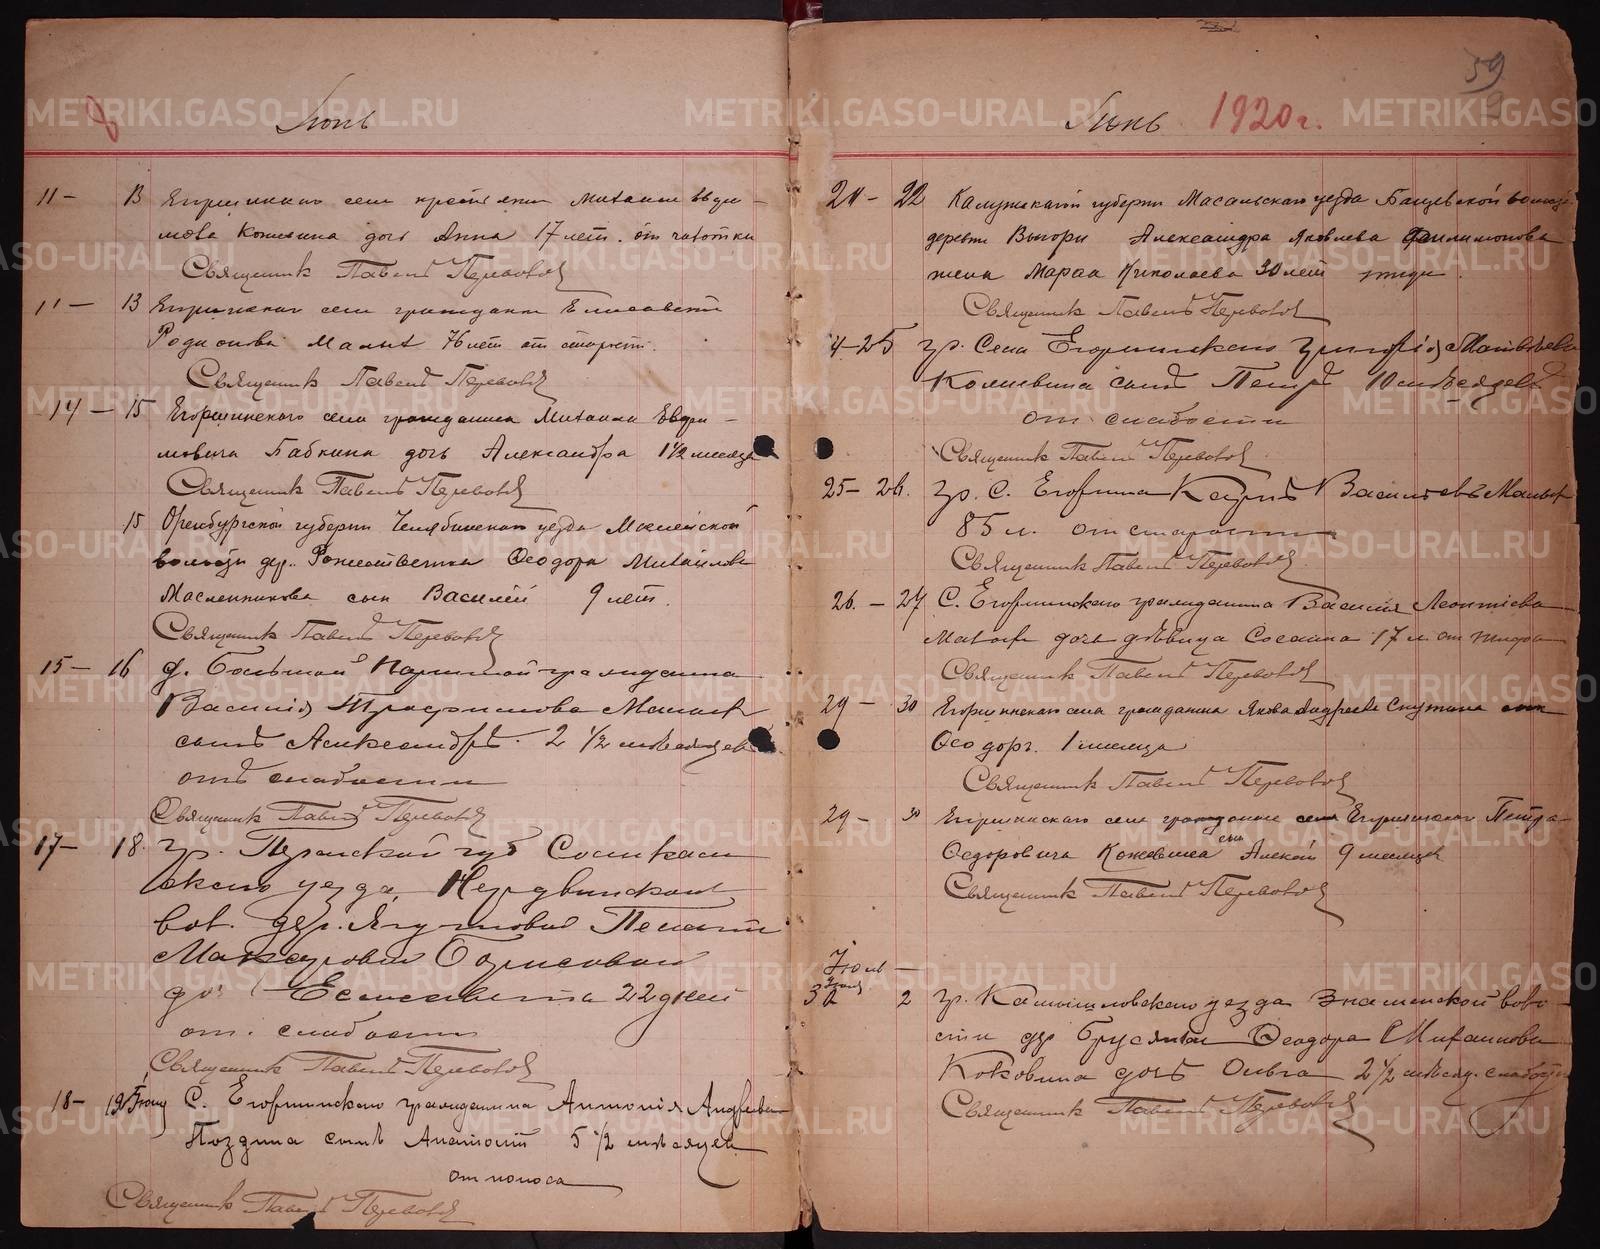 Июнь
8
11 - 13 Егоршинскаго села крестьянина Михаила Евфи-
мова Кожевина дочь Анна 17 лет. от чахотки
Священник Павел Перевозов
11 - 13 Егоршинскаго села гражданка Елисавета
Родионова Малых 76 лет от старости.
Священник Павел Перевозов
14 - 15 Егоршинского села гражданина Михаила Евфи-
мовича Бабкина дочь Александра 1 1/2 месяца
Священник Павел Перевозов
15 Оренбургской губернии Челябинскаго уезда
волости дер. Рожественка Феодора Михайлова
Масленникова сын Василий 9 лет.
Священник Павел Перевозов
15 - 16 д. Большой гражданина
Василія Трофимова Малых
сынъ Александръ. 2 1/2 месяцев
отъ слабости
Священник Павел Перевозов
17 - 18. гр. Пермской губ Соликам
скаго уезда, Нердвинской
вол. дер. Пелагеи
Борисовой
дочь Елисавета 22 дней
от. слабости
Священник Павел Перевозов
18 - 19 С. Егоршинскаго гражданина Антонія Андреева
Поздина сынъ Анатолий 5 1/2 месяцев
от поноса
Священник Павел Перевозов
59
Июнь 1920 г.
21 - 22 Калужской губернии Масальскаго уезда волости
деревни Выгори Александра Яковлева Филимонова
жена Мария Николаева 30 лет
Священник Павел Перевозов
4 - 25 гр. Села Егоршинскаго Григорія Матвеева
сынъ Петръ 10 месяцев
от слабости
Священник Павел Перевозов
25 - 26. гр. С. Егоршина Васильевъ Малых
85 л. от старости
Священник Павел Перевозов
26. - 27 С. Егоршинскаго гражданина Василія Леонтіева
Малых дочь девица 17 л. от тифа
Священник Павел Перевозов
29 - 30 Егоршинскаго села гражданина Якова Андреева сын
Феодор. 1 месяца
Священник Павел Перевозов
29 - 30 Егоршинскаго села гражданина Егоршинскаго Петра
Федоровича Кожевина сын Алексей 9 месяцев
Священник Павел Перевозов
Июль
2 гр. Камышловскаго уезда Знаменской воло-
сти дер Брусяной Феодора Михаилова
Коковина дочь Ольга 2 1/2 месяц. слабости
Священник Павел Перевозов
METRIKI.GASO-URAL.RU